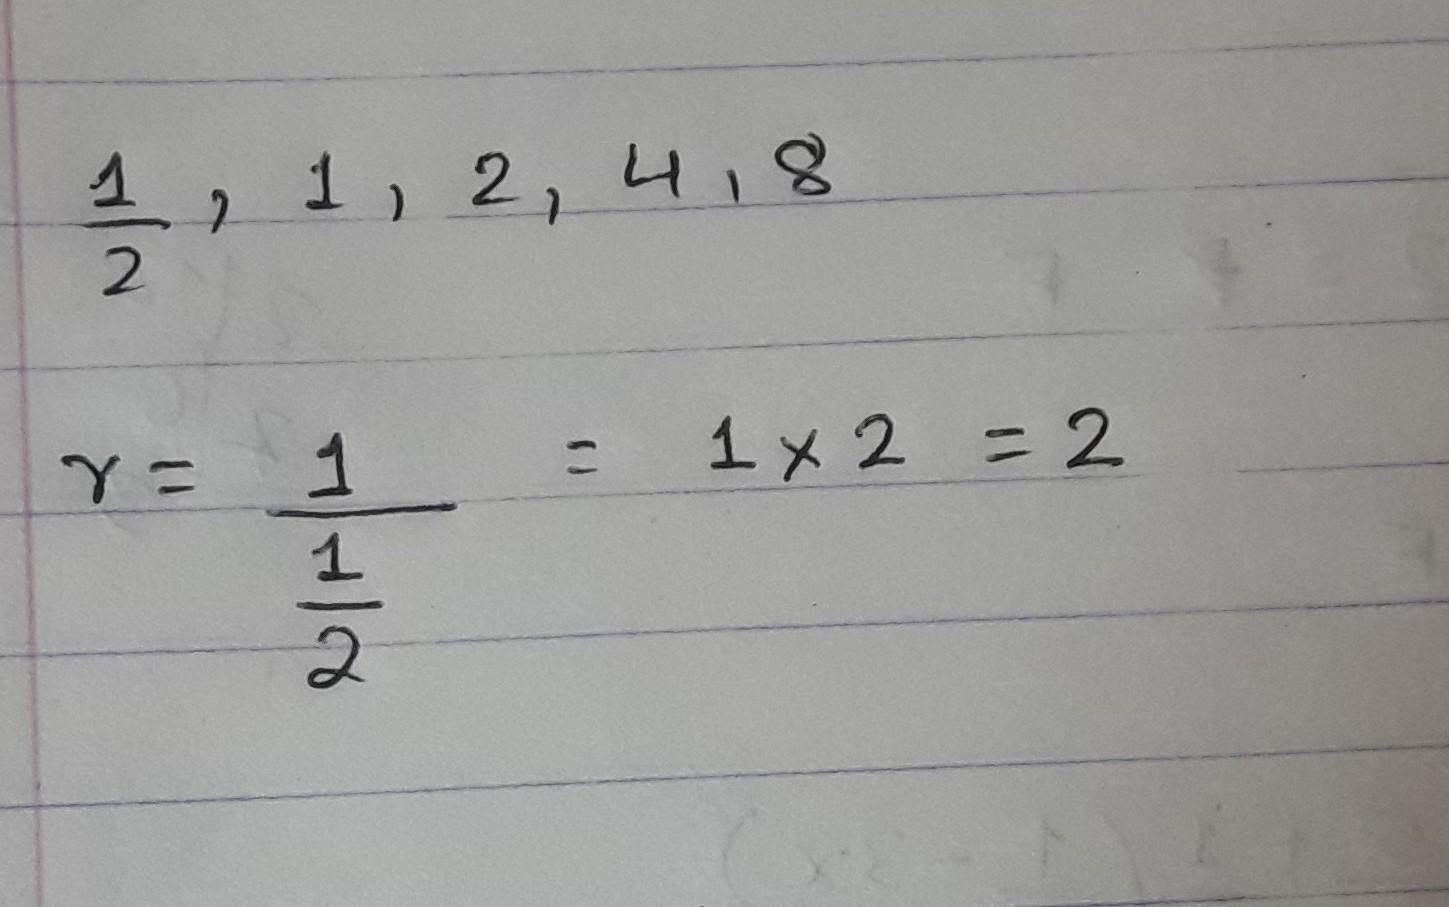 1/2 , 1 , 2 , 4 , 8
r = 1/(1/2) = 1 × 2 = 2